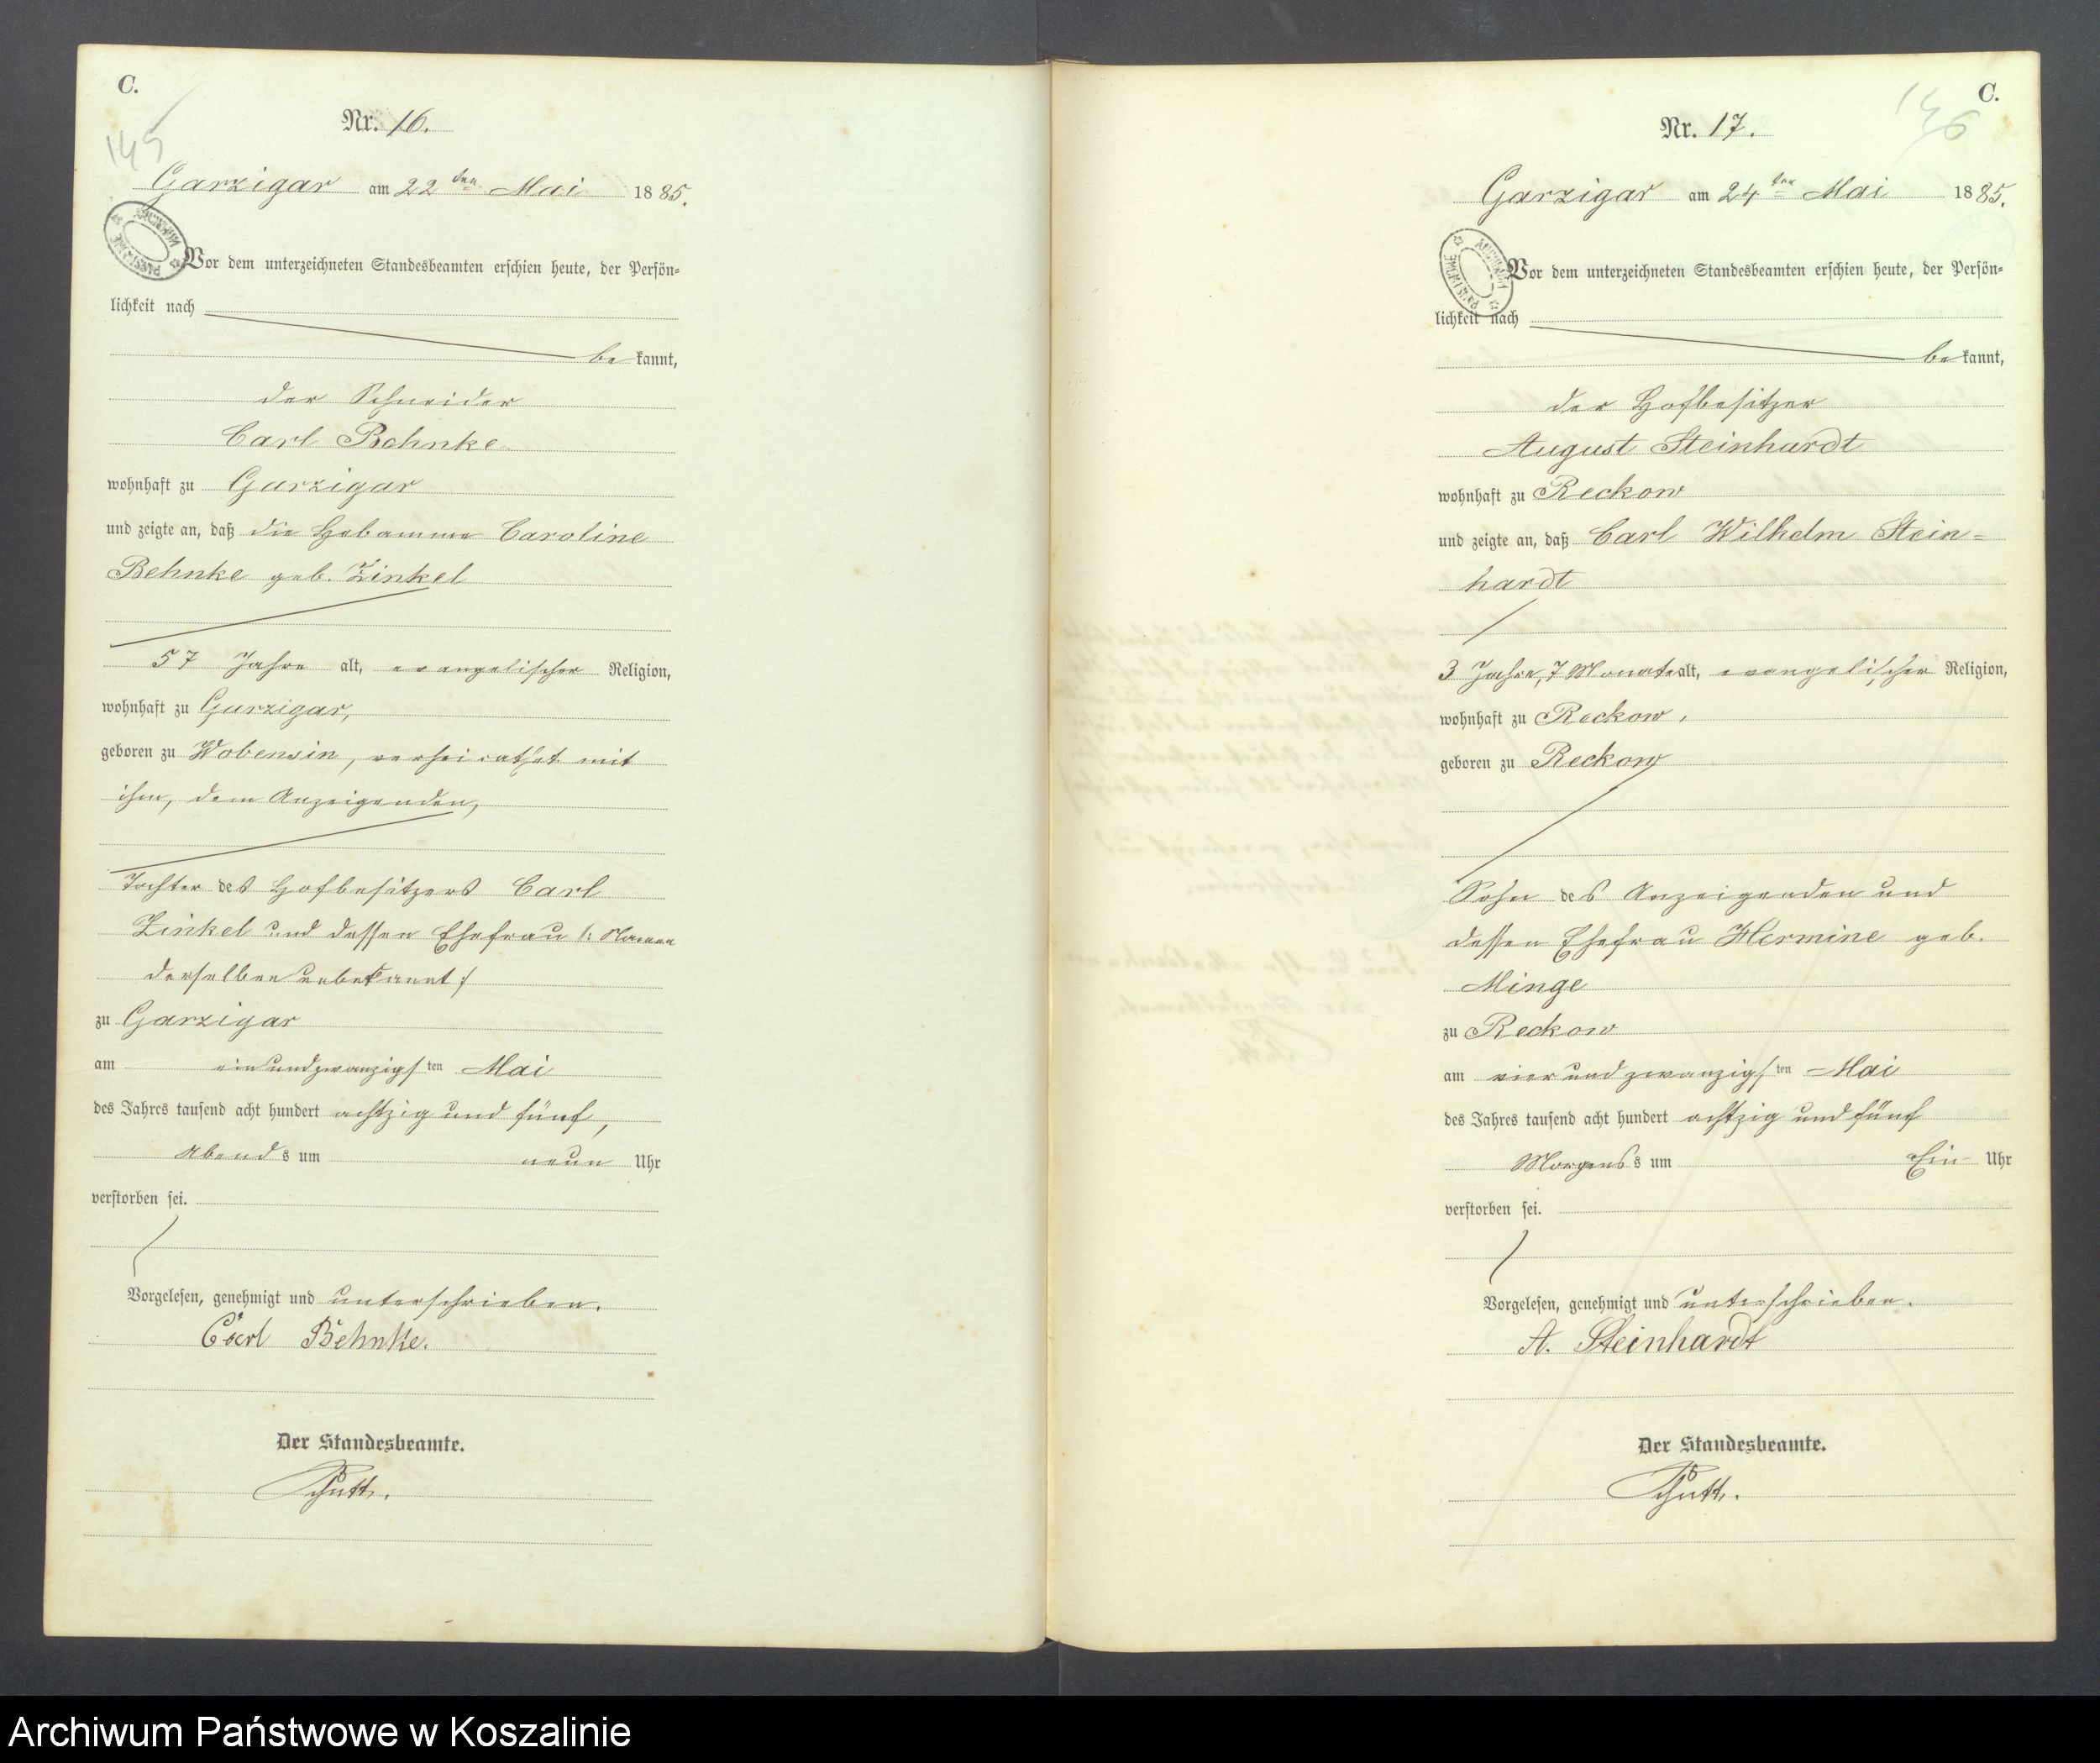 C.
145
Nr. 16.
Garzigar am 22ten Mai 1885.
Vor dem unterzeichneten Standesbeamten erschien heute, der Persön=
lichkeit nach
bekannt,
der Schneider
Carl Behnke
wohnhaft zu Garzigar
und zeigte an, daß die Hebamme Caroline
Behnke geb. Zinkel
57 Jahre alt, evangelischer Religion,
wohnhaft zu Garzigar,
geboren zu Wobensin, verheirathet mit
ihm, dem Anzeigenden,
Tochter des Hofbesitzers Carl
Zinkel und dessen Ehefrau /: Namen
derselben unbekannt :/
zu Garzigar
am einundzwanzigsten Mai
des Jahres tausend acht hundert achtzig und fünf,
Abends um neun Uhr
verstorben sei.
Vorgelesen, genehmigt und unterschrieben.
Carl Behnke.
Der Standesbeamte.
Schütt.
C.
146
Nr. 17.
Garzigar am 24ten Mai 1885.
Vor dem unterzeichneten Standesbeamten erschien heute, der Persön=
lichkeit nach
bekannt,
der Hofbesitzer
August Steinhardt
wohnhaft zu Reckow
und zeigte an, daß Carl Wilhelm Stein=
hardt
3 Jahre, 7 Monate alt, evangelischer Religion,
wohnhaft zu Reckow,
geboren zu Reckow
Sohn des Anzeigenden und
dessen Ehefrau Hermine geb.
Minge
zu Reckow
am vierundzwanzigsten Mai
des Jahres tausend acht hundert achtzig und fünf
Morgens s um Ein Uhr
verstorben sei.
Vorgelesen, genehmigt und unterschrieben.
A. Steinhardt
Der Standesbeamte.
Schütt.
Archiwum Państwowe w Koszalinie